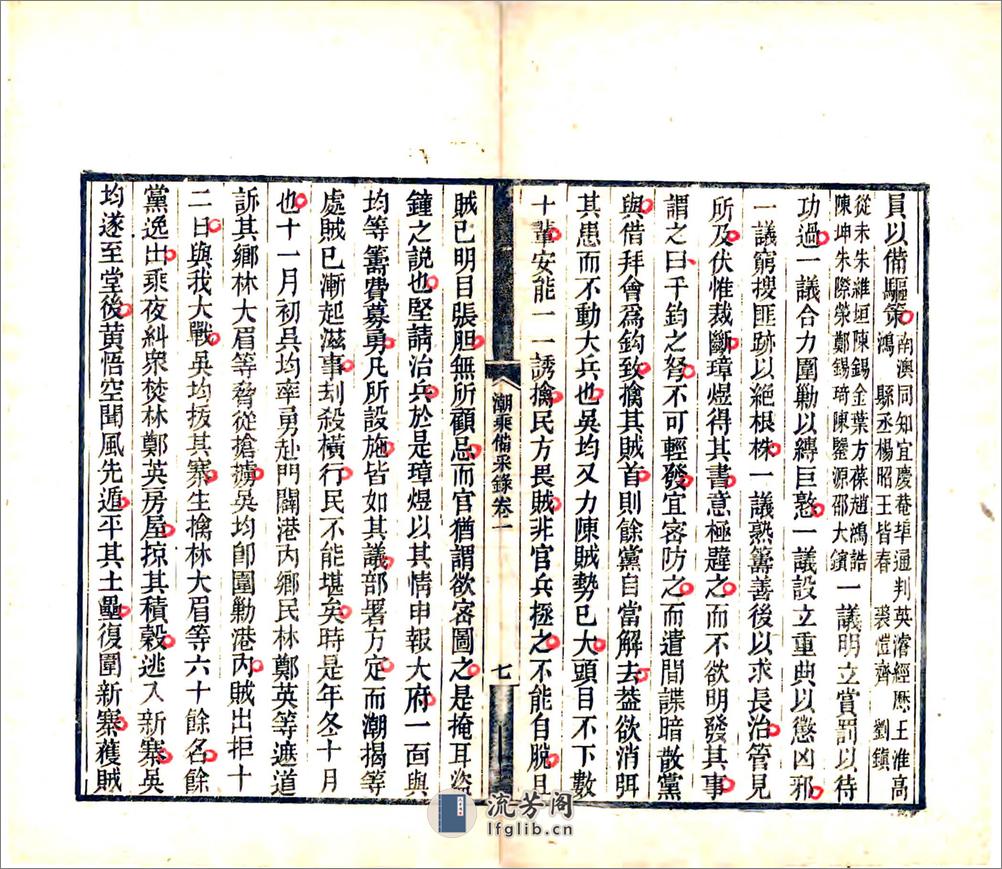 員以備驅策南澳同知宜慶菴埠通判英濬經歷王淮高
鴻縣丞楊昭王皆春裘愷齊劉鎮
從未朱維垣陳錫金葉方葆趙鴻誥
陳坤朱際榮鄭錫琦陳鑒源邵大鑌一議明立賞罰以待
功過一議合力圍勦以縛巨憝一議設立重典以懲凶邪
一議窮搜匪跡以絕根株一議熟籌善後以求長治管見
所及伏惟裁斷璋煜得其書意極韙之而不欲明發其事
謂之曰千鈞之弩不可輕發宜密防之而遣間諜暗散黨
與借拜會爲鈎致擒其賊首則餘黨自當解去葢欲消弭
其患而不動大兵也吳均又力陳賊勢已大頭目不下數
十輩安能一一誘擒民方畏賊非官兵拯之不能自脫且
潮乘備采錄卷二
七
賊已明目張胆無所顧忌而官猶謂欲密圖之是掩耳盜
鐘之說也堅請治兵於是璋煜以其情申報大府一面與
均等籌費募勇凡所設施皆如其議部署方定而潮揭等
處賊已漸起滋事刦殺橫行民不能堪矣時是年冬十月
也十一月初吳均率勇赴門闢港內鄉民林鄭英等遮道
訴其鄉林大眉等脅從搶擄吳均卽圍勦港內賊出拒十
二日與我大戰吳均拔其寨生擒林大眉等六十餘名餘
黨逸出乘夜糾衆焚林鄭英房屋掠其積穀逃入新寨吳
均遂至堂後黄悟空聞風先遁平其土壘復圍新寨獲賊
流芳阁
lfglib.cn